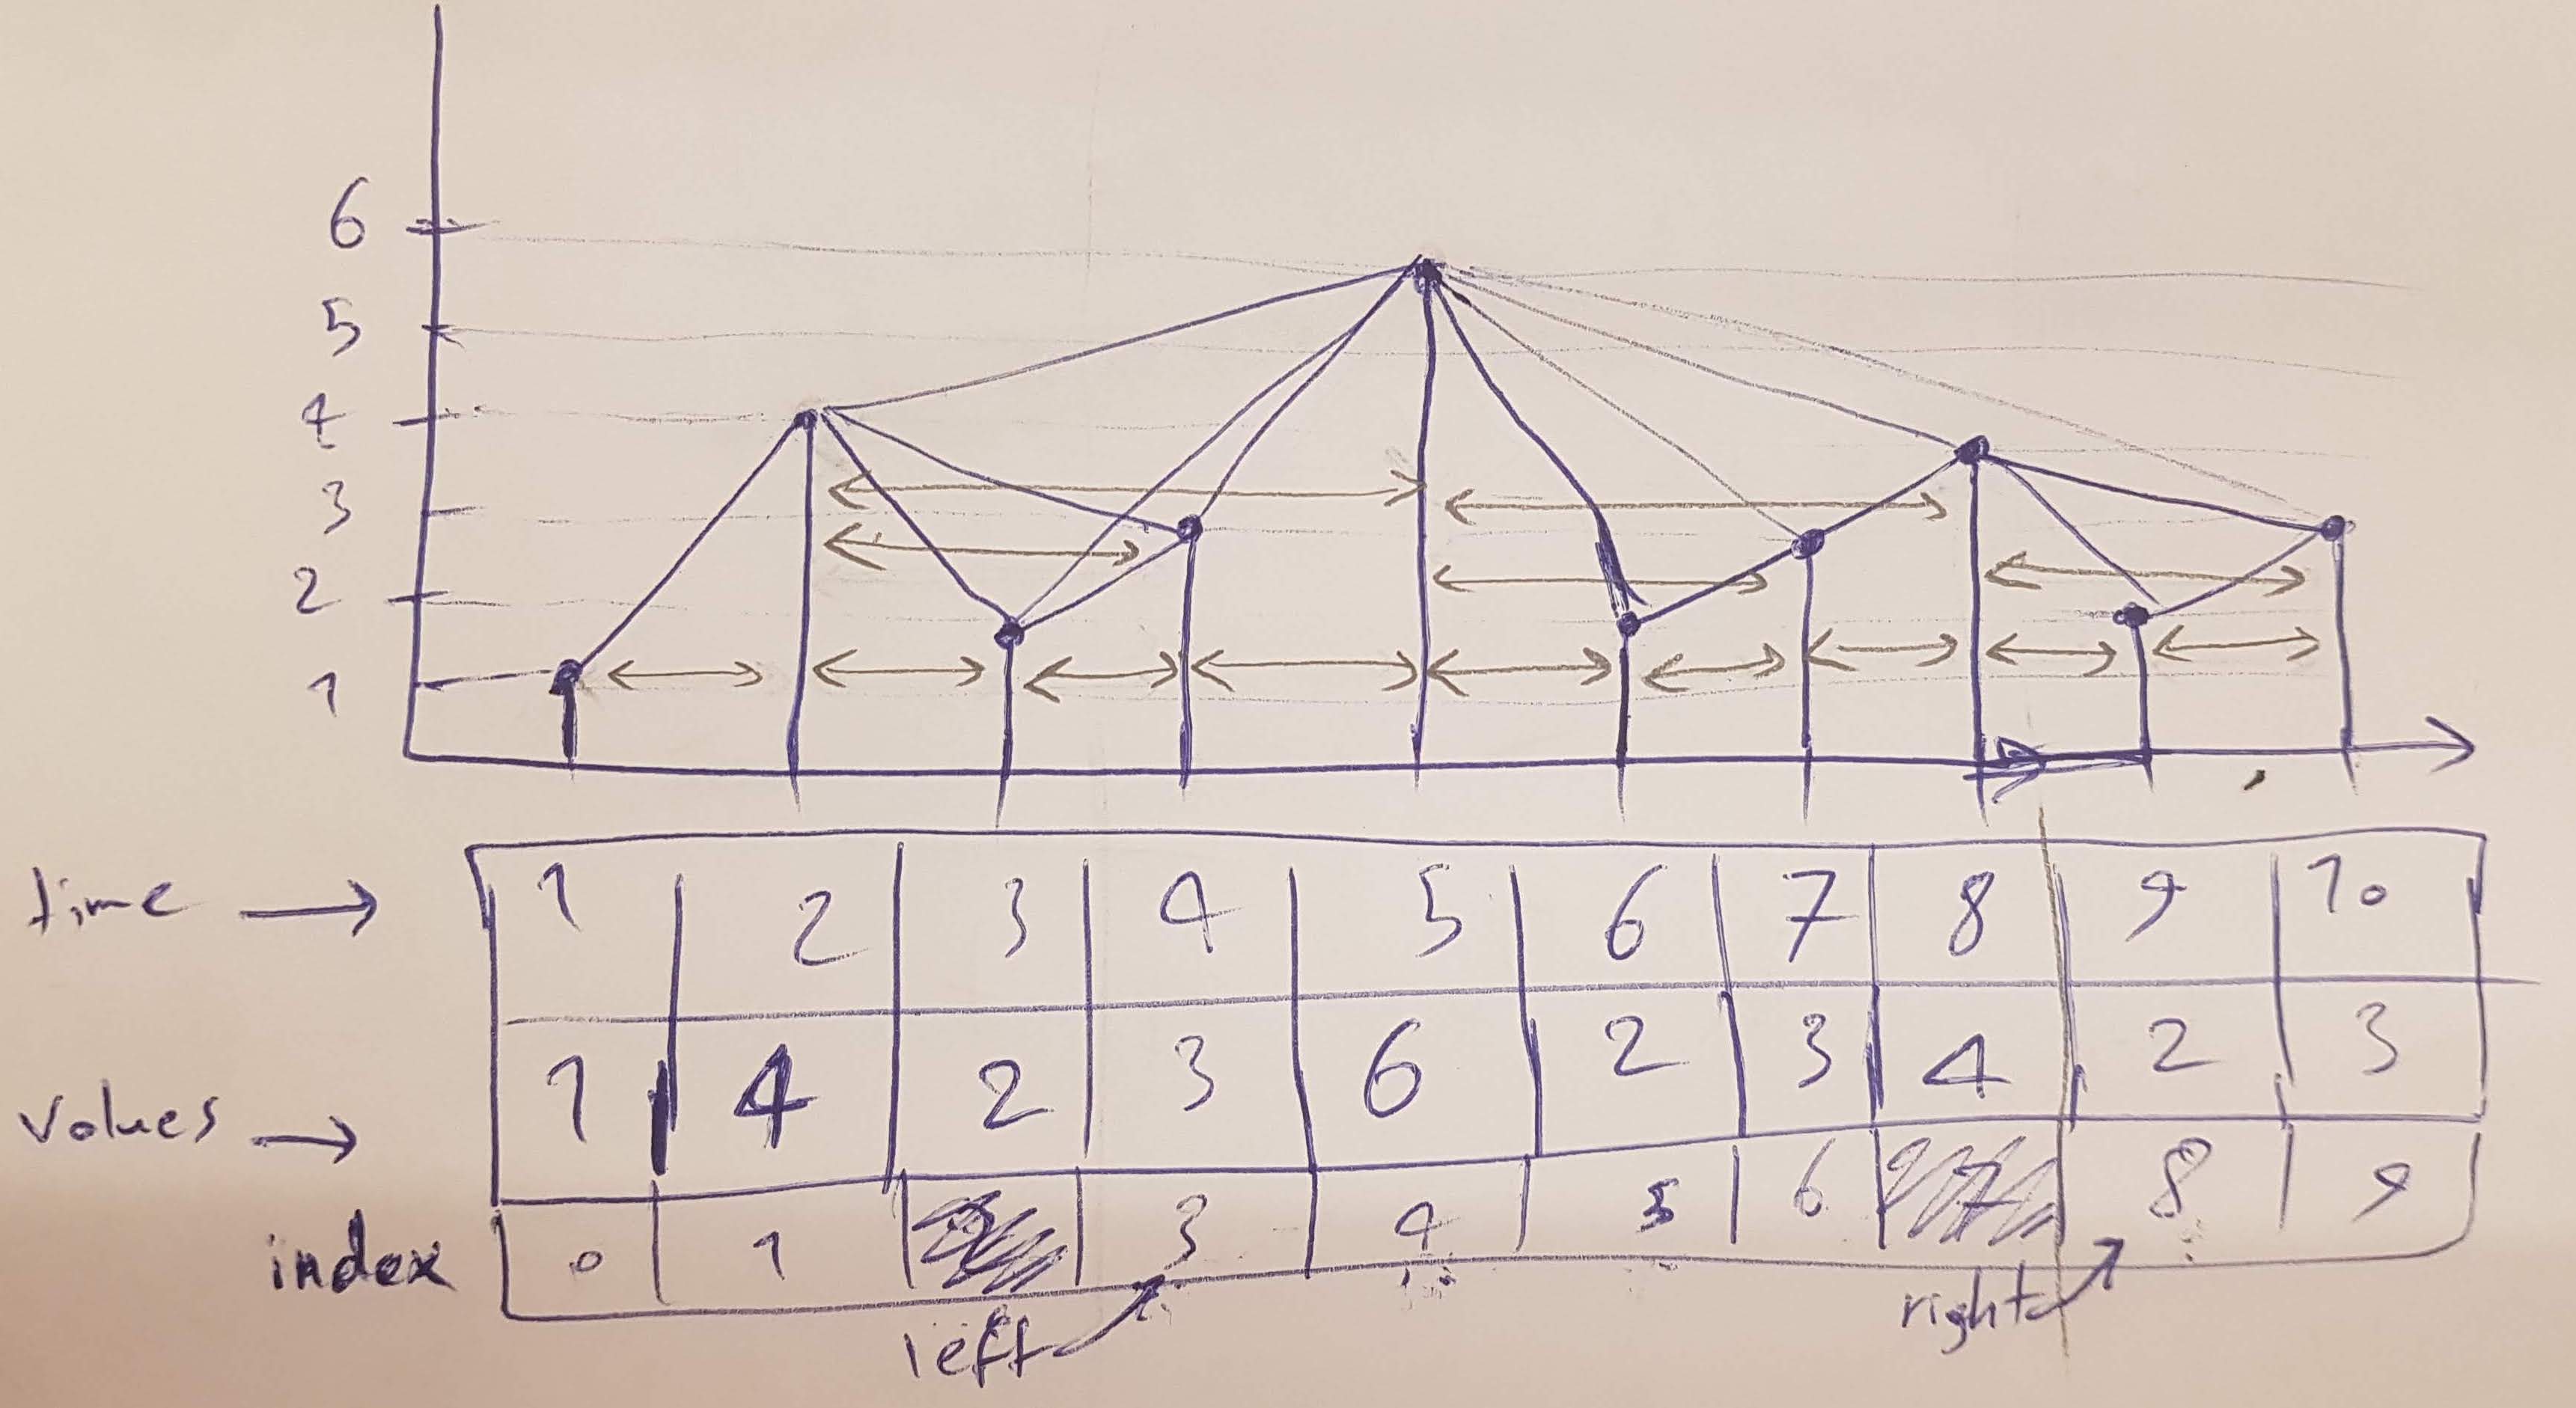 6
5
4
3
2
1
time → 1 2 3 4 5 6 7 8 9 10
values → 1 4 2 3 6 2 3 4 2 3
index 0 1 2 3 4 5 6 7 8 9
left right